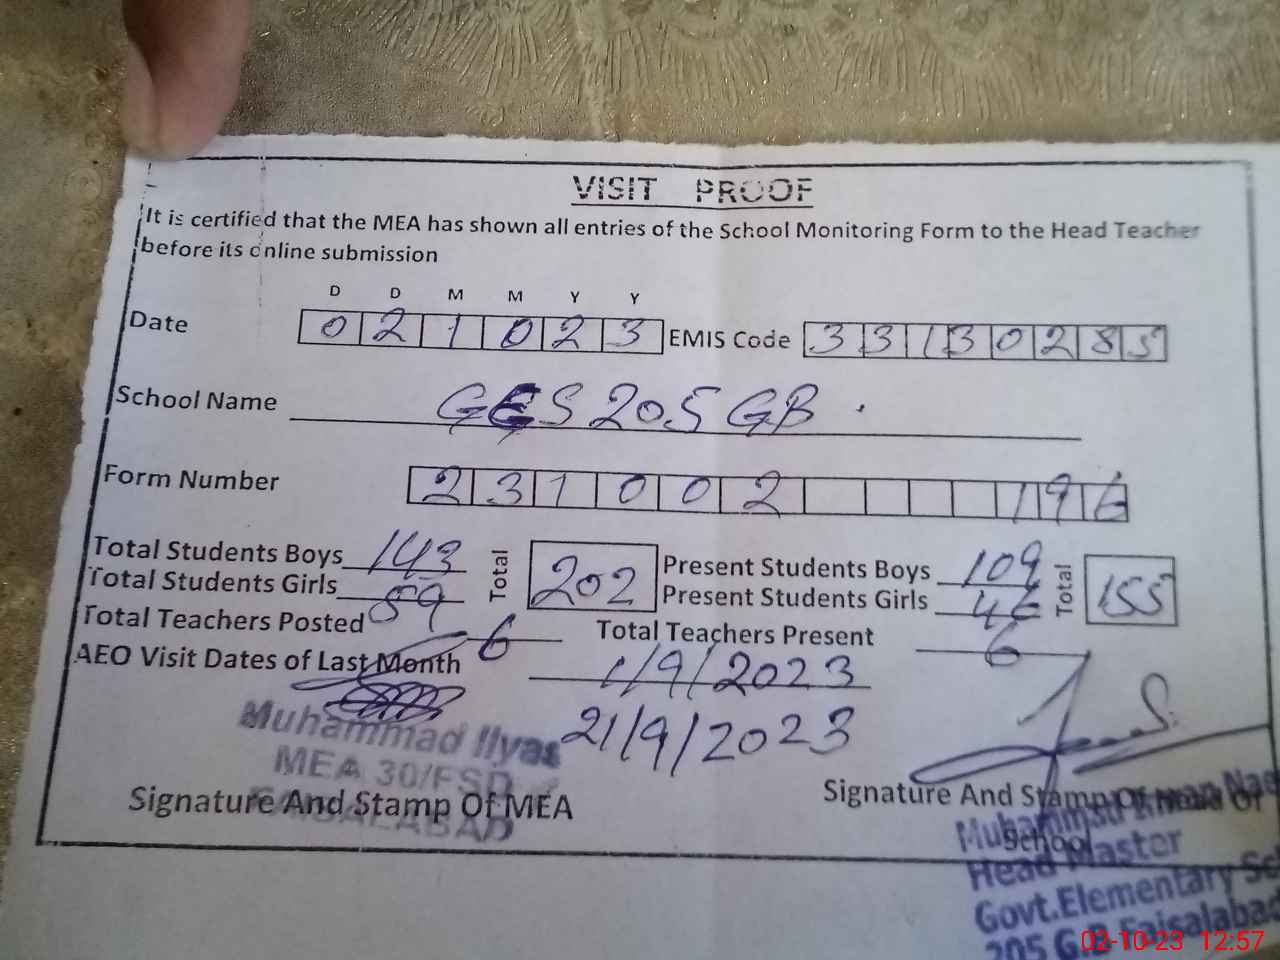 VISIT PROOF
It is certified that the MEA has shown all entries of the School Monitoring Form to the Head Teacher
before its online submission
D D M M Y Y
Date 0 2 1 0 2 3 EMIS Code 3 3 1 3 0 2 8 5
School Name GES 205 GB
Form Number 2 3 1 0 0 2 1 9 6
Total Students Boys 143 Total 202 Present Students Boys 109 Total 155
Total Students Girls 59 Present Students Girls 46
Total Teachers Posted 6 Total Teachers Present 6
AEO Visit Dates of Last Month 1/9/2023
21/9/2023
Muhammad Ilyas
MEA 30/FSD
FAISALABAD
Signature And Stamp Of MEA
Signature And Stamp Of Head Of
School
Muhammad
Head Master
Govt.Elementary
205 G.B Faisalabad
02-10-23 12:57